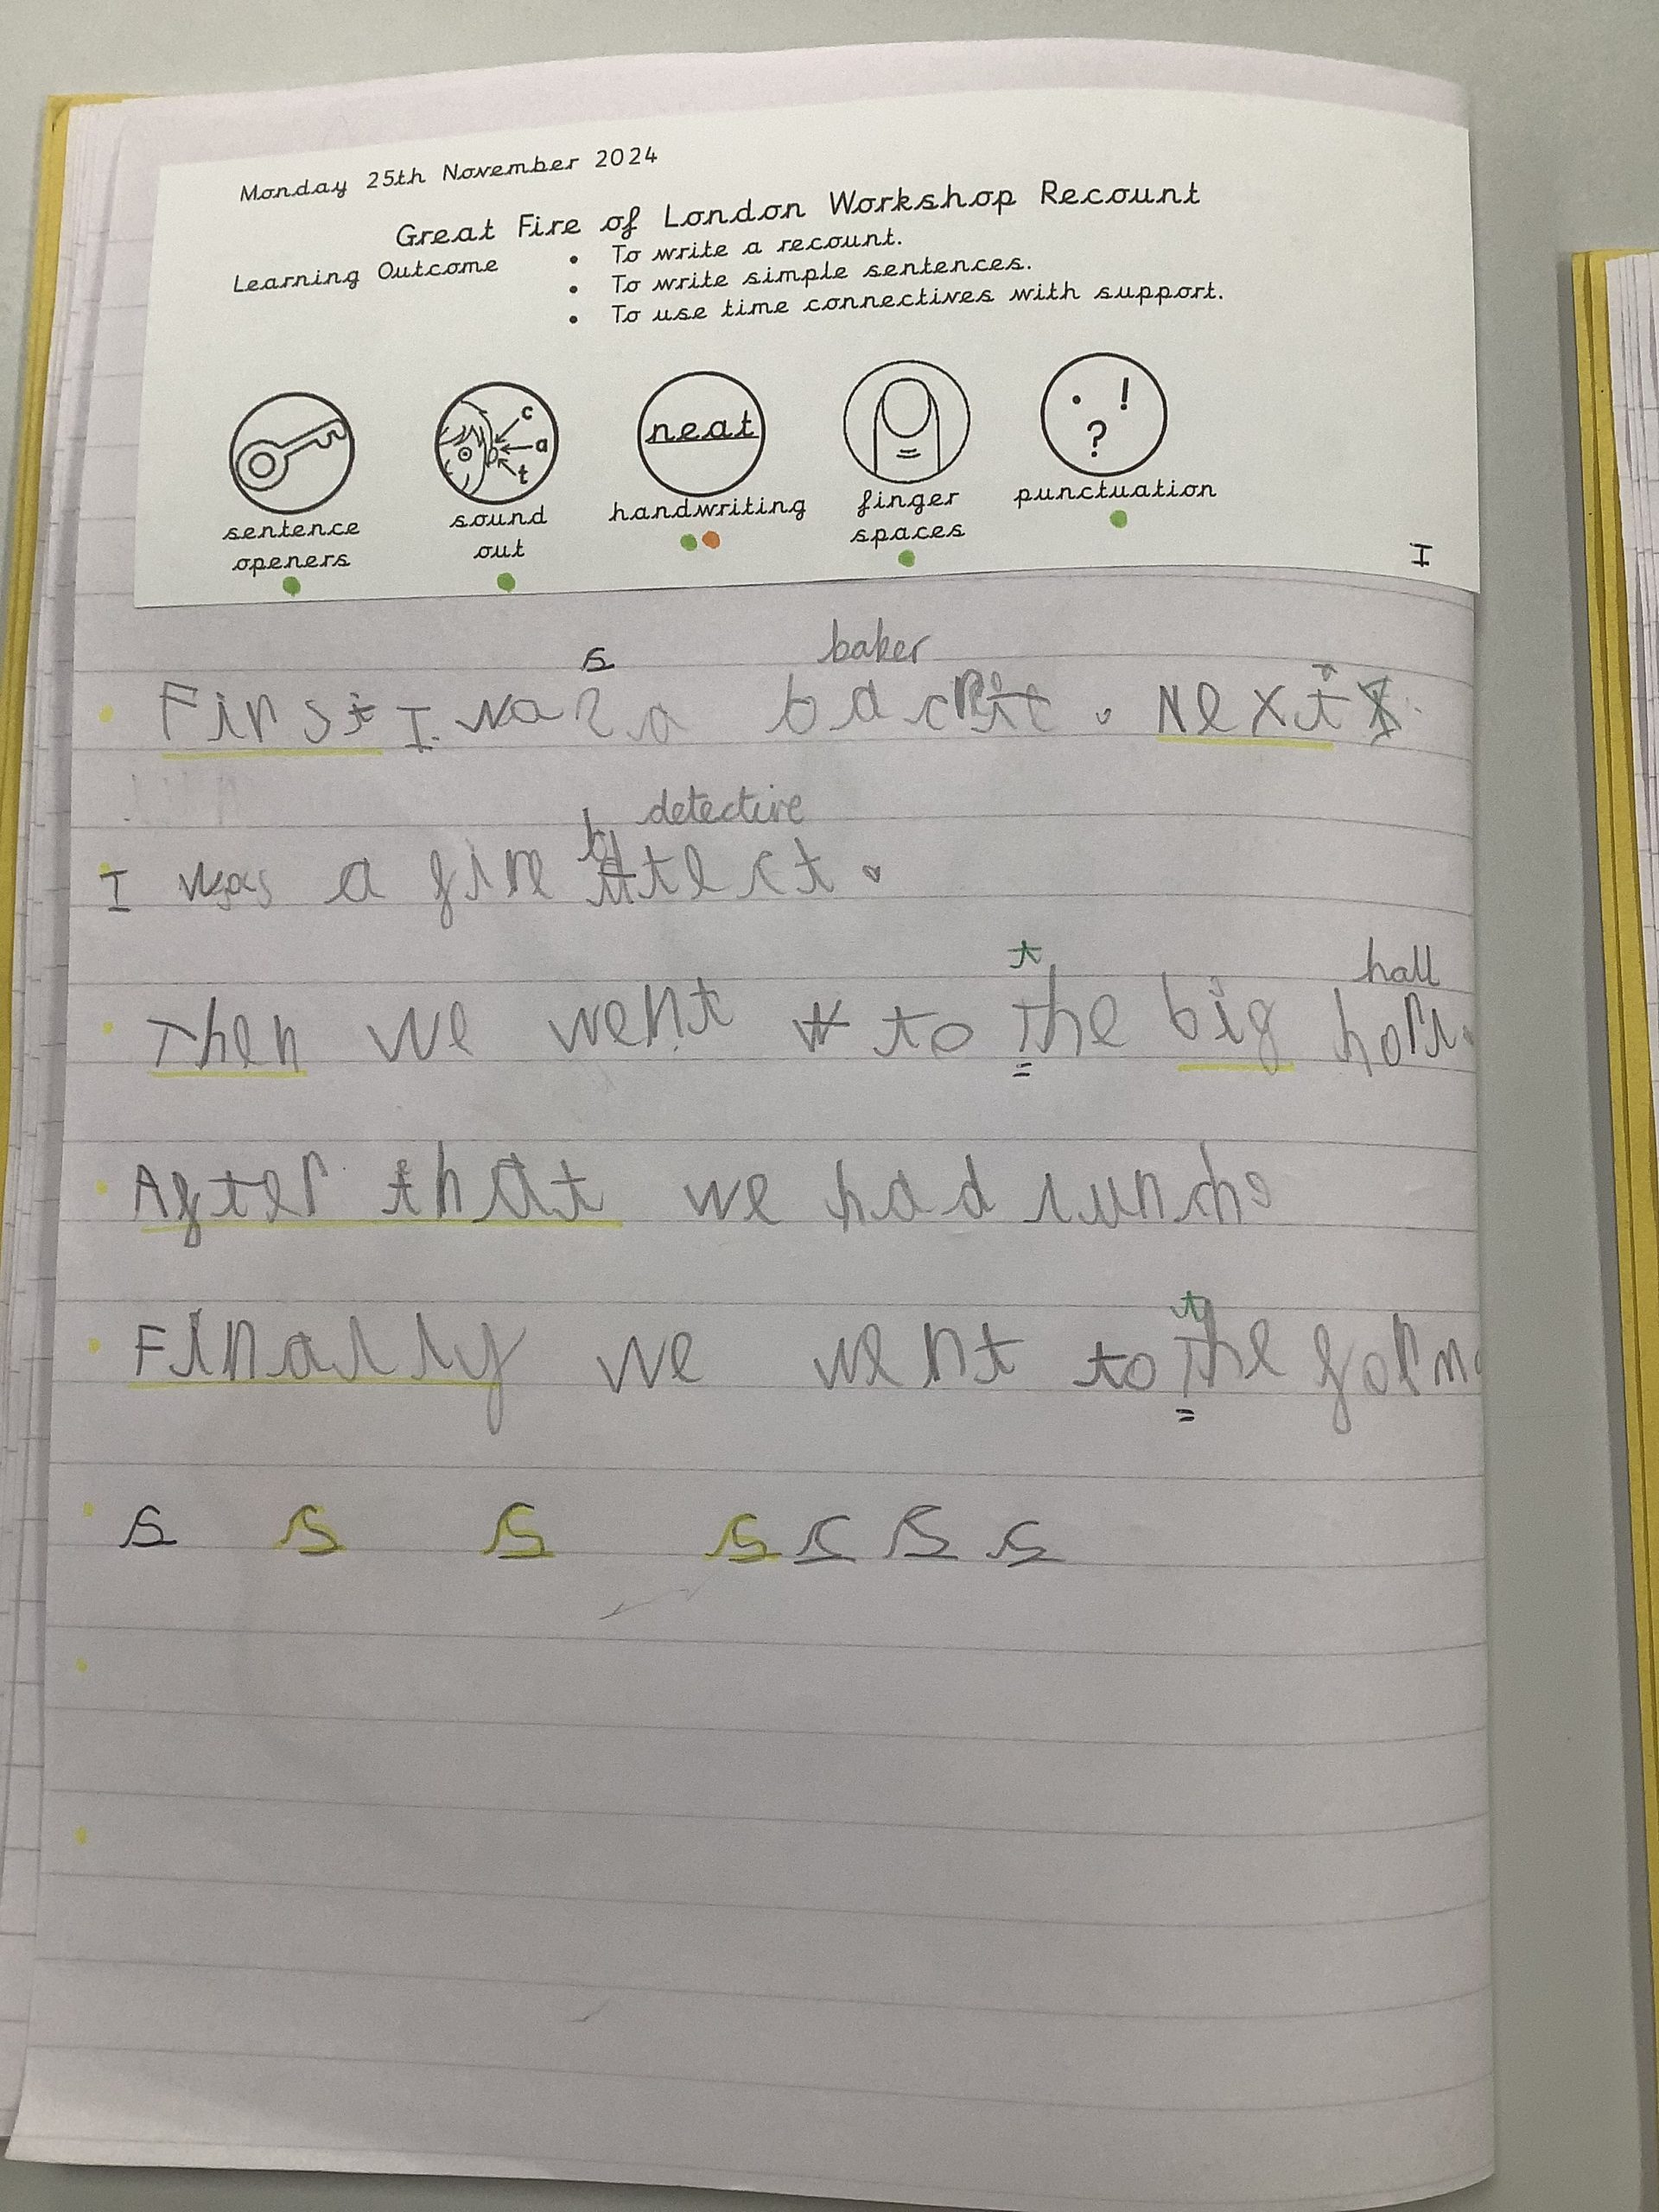 Monday 25th November 2024
Great Fire of London Workshop Recount
Learning Outcome
• To write a recount.
• To write simple sentences.
• To use time connectives with support.
c
a
t
neat
. ! ?
sentence openers
sound out
handwriting
finger spaces
punctuation
I
s baker
First I was a . Next
detective
I was a fire
t hall
Then we went to The big
After that we had lunch
t
Finally we went to The
s s s s s s s